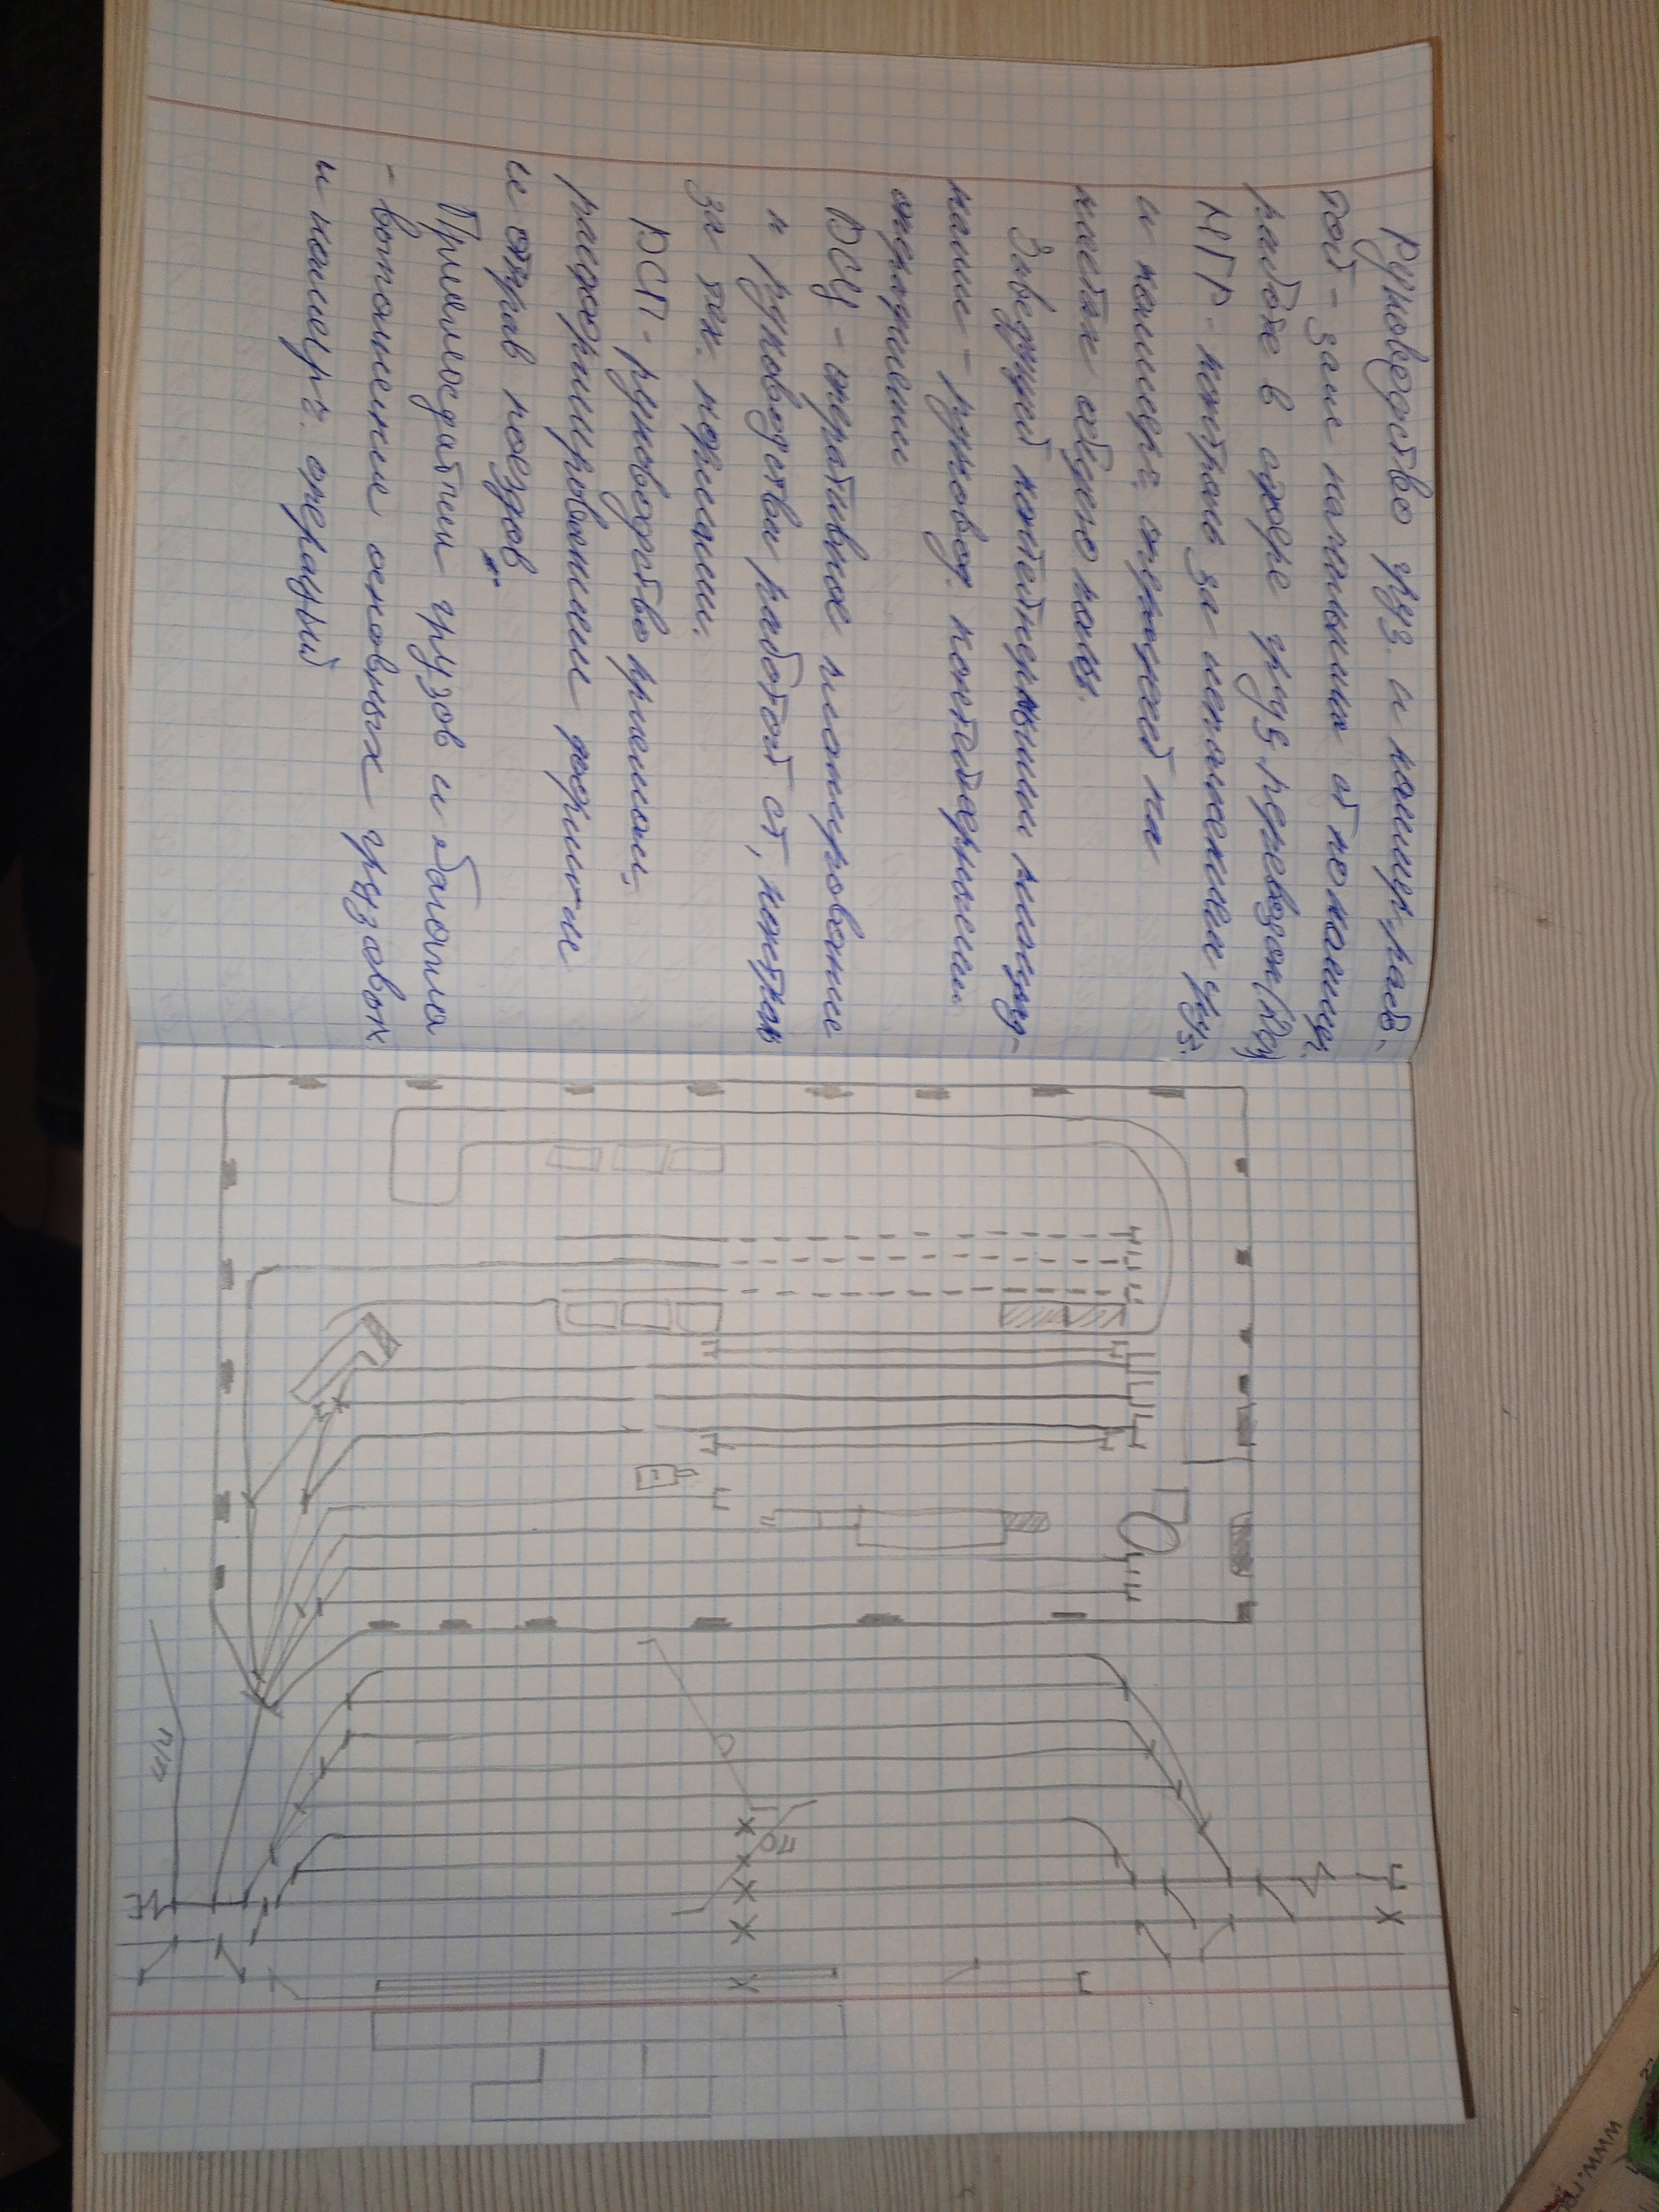 Руководство груз. и коммер. раб-
той - зам начальника ст по коммер.
работе в сфере груз. перевозок (ДСЗМ)
МГР - контроль за исполнением груз.
и коммерч. операцией на
местах общего польз.
Заведующий контейнерными площад-
ками - руковод. контейнерными
операциями
ДСЦ - оперативное планирование
и руководства работой ст, контроль
за тех. нормами.
ДСП - руководство приемом,
расформированием формиг-ем
и отправ поездов
Приемосдатчик грузов и багажа
- выполнение основных грузовых
и коммерч. операций
ПП